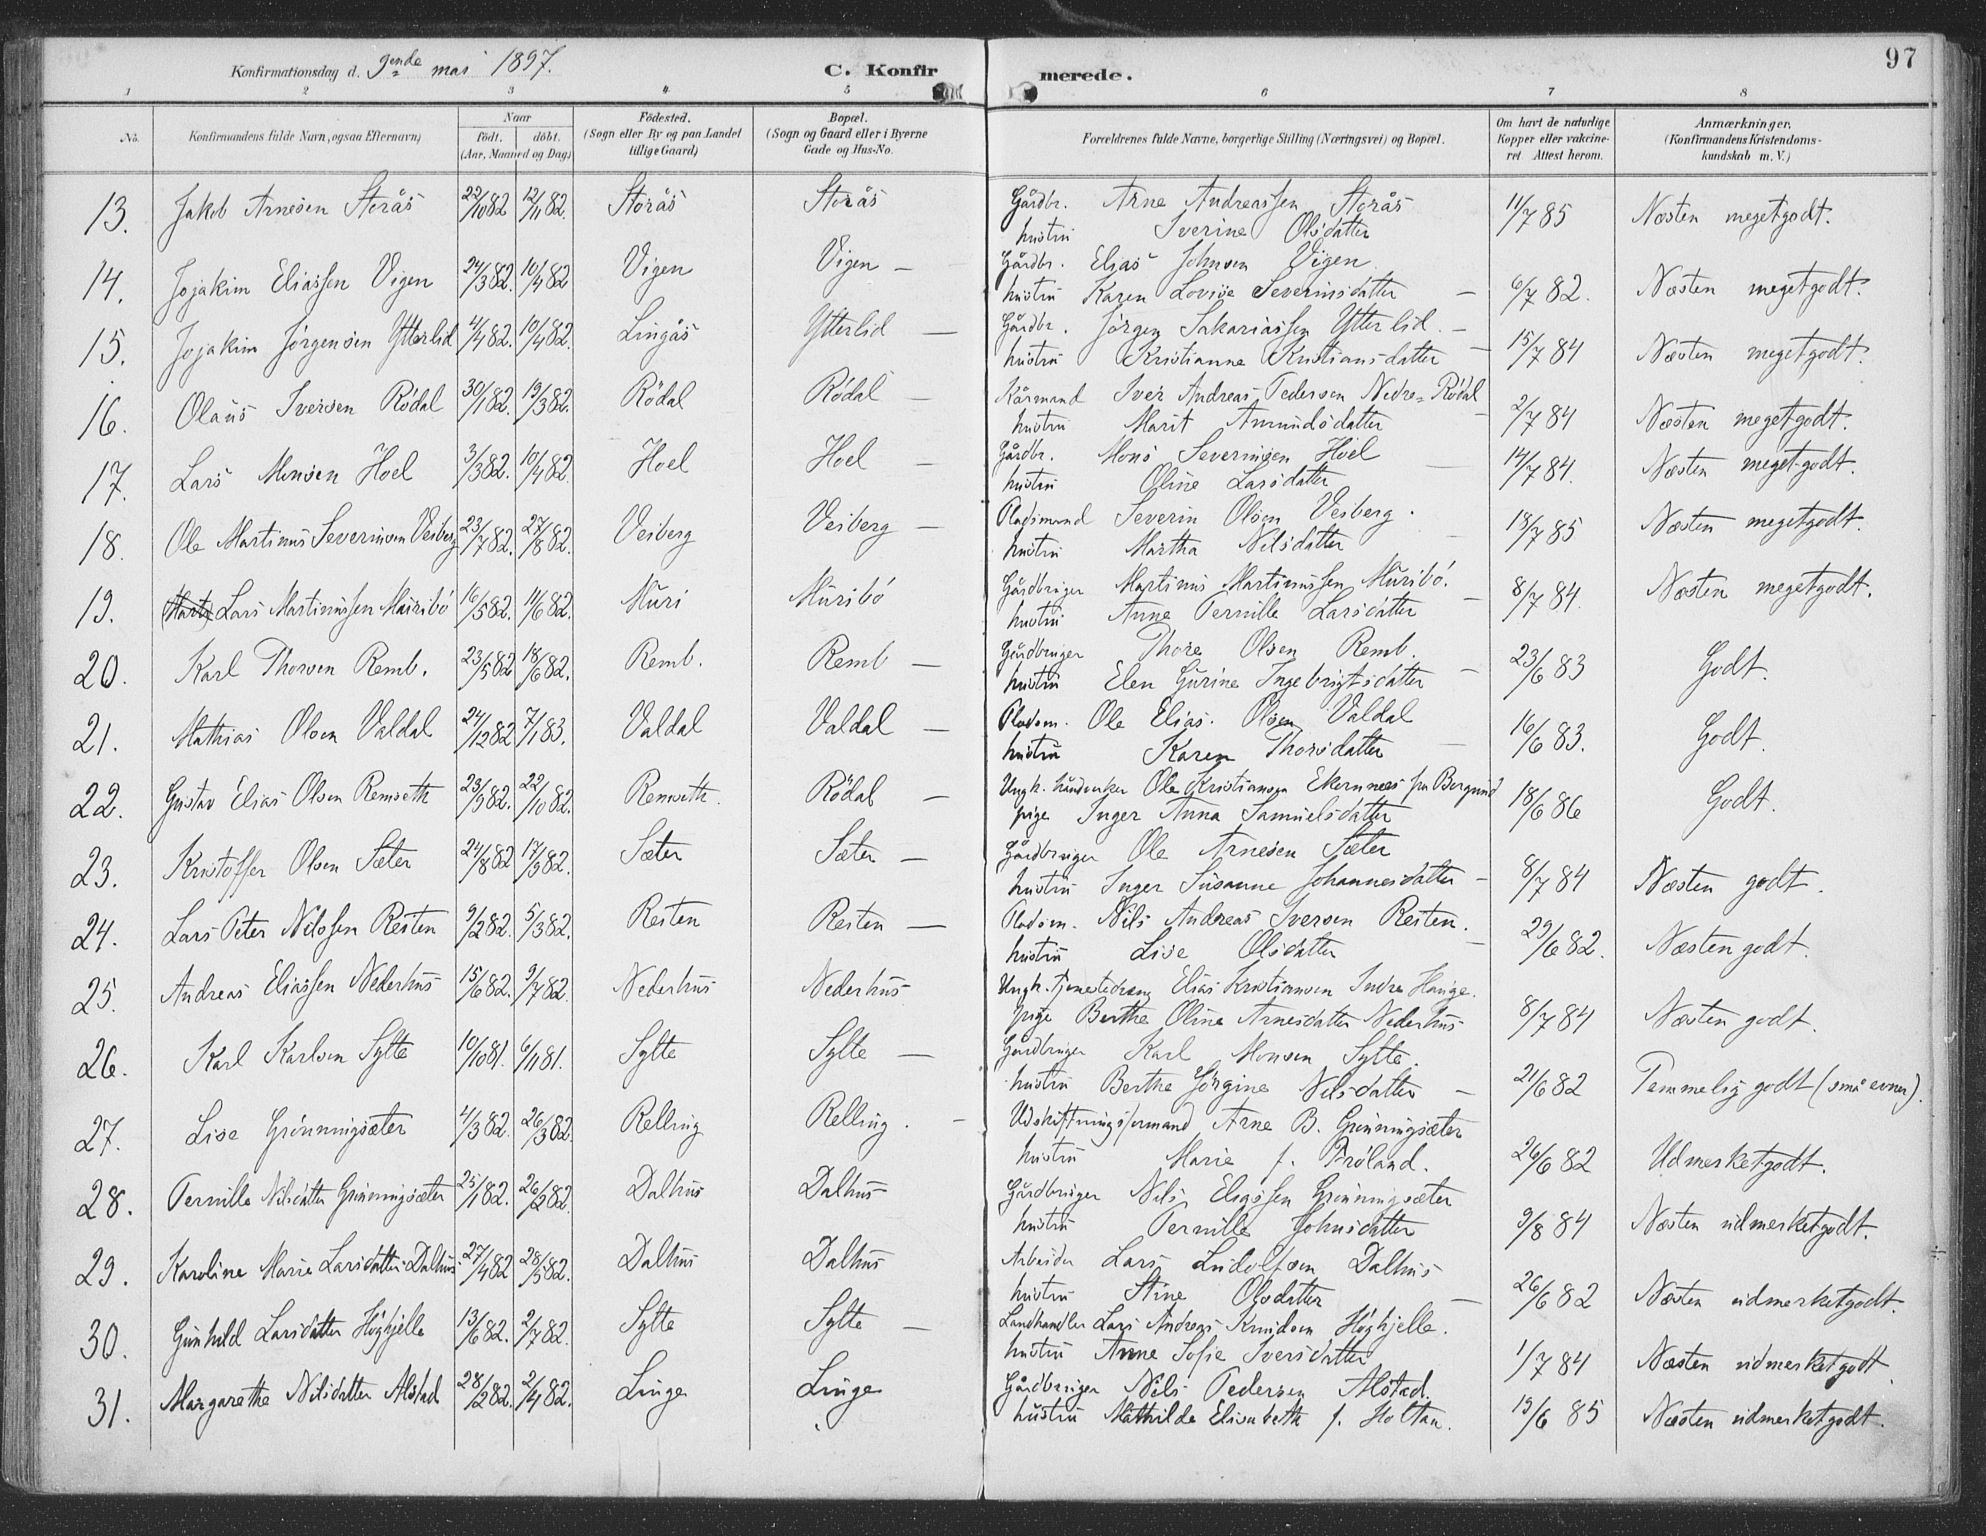 97
Konfirmationsdag d. 9ende mai 1897. C. Konfirmerede.
1 2 3 4 5 6 7 8
No. Konfirmandens fulde Navn, ogsaa Efternavn) Naar født. døbt. (Aar, Maaned og Dag) Fødested. (Sogn eller By og paa Landet tillige Gaard) Bopæl. (Sogn og Gaard eller i Byerne Gade og Hus-No. Forældrenes fulde Navne, borgerlige Stilling (Næringsvei) og Bopæl. Om havt de naturlige Kopper eller vakcineret. Attest herom. Anmærkninger. (Konfirmandens Kristendomskundskab m. V.)
13. Jakob Arnesen Storås 22/10 82 12/11 82. Storås Storås Gårdbr. Arne Andreassen Storås 11/7 85 Næsten megetgodt.
hustru Sverine Olsdatter
14. Jojakim Eliassen Vigen 24/3 82. 10/4 82 Vigen Vigen — Gårdbr. Elias Johnsen Vigen 6/7 82. Næsten megetgodt.
hustru Karen Lovise Severinsdatter —
15. Jojakim Jørgensen Ytterlid 4/4 82. 10/4 82. Lingås Ytterlid — Gårdbr. Jørgen Sakariassen Ytterlid. — 15/7 84 Næsten megetgodt.
hustru Kristianne Kristiansdatter —
16. Olaus Iversen Rödal 30/1 82. 19/3 82. Rödal Rödal — Kårmand Iver Andreas Pedersen Nedre-Rödal 2/7 84 Næsten megetgodt.
hustru Marit Amundsdatter —
17. Lars Monsen Hoel 3/3 82. 10/4 82 Hoel Hoel — Gårdbr. Mons Severinsen Hoel 14/7 84. Næsten megetgodt.
hustru Oline Larsdatter —
18. Ole Martinus Severinsen Veiberg 23/7 82. 27/8 82. Veiberg Veiberg — Pladsmand Severin Olsen Veiberg. 18/7 85 Næsten megetgodt.
hustru Martha Nilsdatter —
19. Lars Martinussen Muribö 16/5 82. 11/6 82. Muri Muribö Gårdbruger Martinus Martinussen Muribö. 8/7 84. Næsten megetgodt.
hustru Anne Pernille Larsdatter —
20. Karl Thorsen Remb. 23/5 82 18/6 82. Remb. Remb — Gårdbruger Thore Olsen Remb. 23/6 83 Godt.
hustru Elen Gurine Ingebrigtsdatter —
21. Mathias Olsen Valdal 24/12 82 7/1 83. Valdal Valdal — Pladsm. Ole Elias Olsen Valdal 16/6 83. Godt.
hustru Karen Thorsdatter —
22. Gustav Elias Olsen Remseth 23/9 82. 22/10 82. Remseth. Rödal — Ungk. håndverker Ole Kristiansen Ekernnes fra Borgund 18/6 86 Godt.
pige Inger Anna Samuelsdatter
23. Kristoffer Olsen Sæter 24/8 82 17/9 82. Sæter Sæter — Gårdbruger Ole Arnesen Sæter 8/7 84 Næsten godt.
hustru Inger Susanne Johannesdatter —
24. Lars Peter Nilssen Resten 9/2 82. 5/3 82. Resten Resten — Pladsm. Nils Andreas Iversen Resten. 29/6 82. Næsten godt.
hustru Lise Olsdatter —
25. Andreas Eliassen Nederhus 15/6 82. 9/7 82. Nederhus Nederhus Ungk. Tjenestedreng Elias Kristiansen Indre Hauge. 8/7 84 Næsten godt.
pige Berthe Oline Arnesdatter Nederhus
26. Karl Karlsen Sylte 10/10 81. 6/11 81. Sylte Sylte — Gårdbruger Karl Monsen Sylte. 21/6 82 Temmelig godt (små evner).
hustru Berthe Jørgine Nilsdatter —
27. Lise Grönningsæter 4/3 82. 26/3 82. Relling Relling. — Udskiftningsformand Arne B. Grönningsæter 26/6 82 Udmerketgodt.
hustru Marie f. Fröland.
28. Pernille Nilsdatter Grönningsæter 25/1 82. 26/2 82. Dalhus Dalhus Gårdbruger Nils Eliassen Grönningsæter 9/8 84 Næsten udmerketgodt.
hustru Pernille Johnsdatter
29. Karoline Marie Larsdatter Dalhus 27/4 82 28/5 82. Dalhus Dalhus Arbeider Lars Ludolfsen Dalhus 26/6 82 Næsten udmerketgodt.
hustru Stine Olsdatter —
30. Gunhild Larsdatter Höghjelle 13/6 82. 2/7 82. Sylte Sylte — Landhandler Lars Andreas Knudsen Höghjelle. 1/7 84 Næsten udmerketgodt.
hustru Anne Sofie Iversdatter
31. Margarethe Nilsdatter Alstad 28/2 82. 2/4 82. Linge Linge Gårdbruger Nils Pedersen Alstad. 19/6 85 Næsten udmerketgodt.
hustru Mathilde Elisabeth f. Holtan.